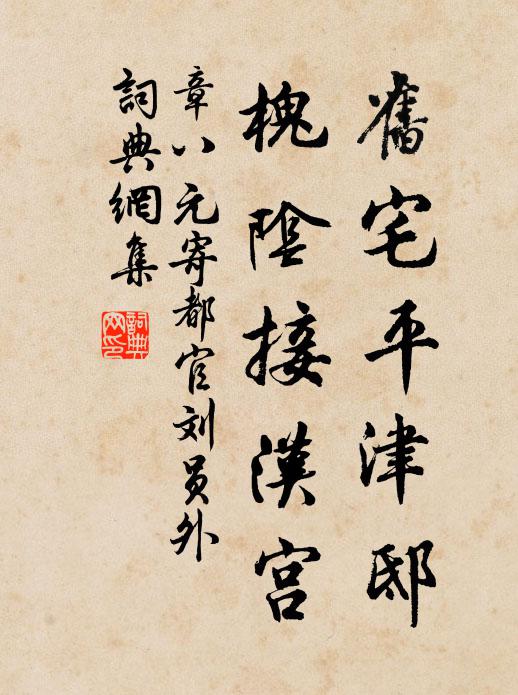 舊宅平津邸
槐陰接漢宮
章八元寄都官刘员外
詞典網集
詞典網印